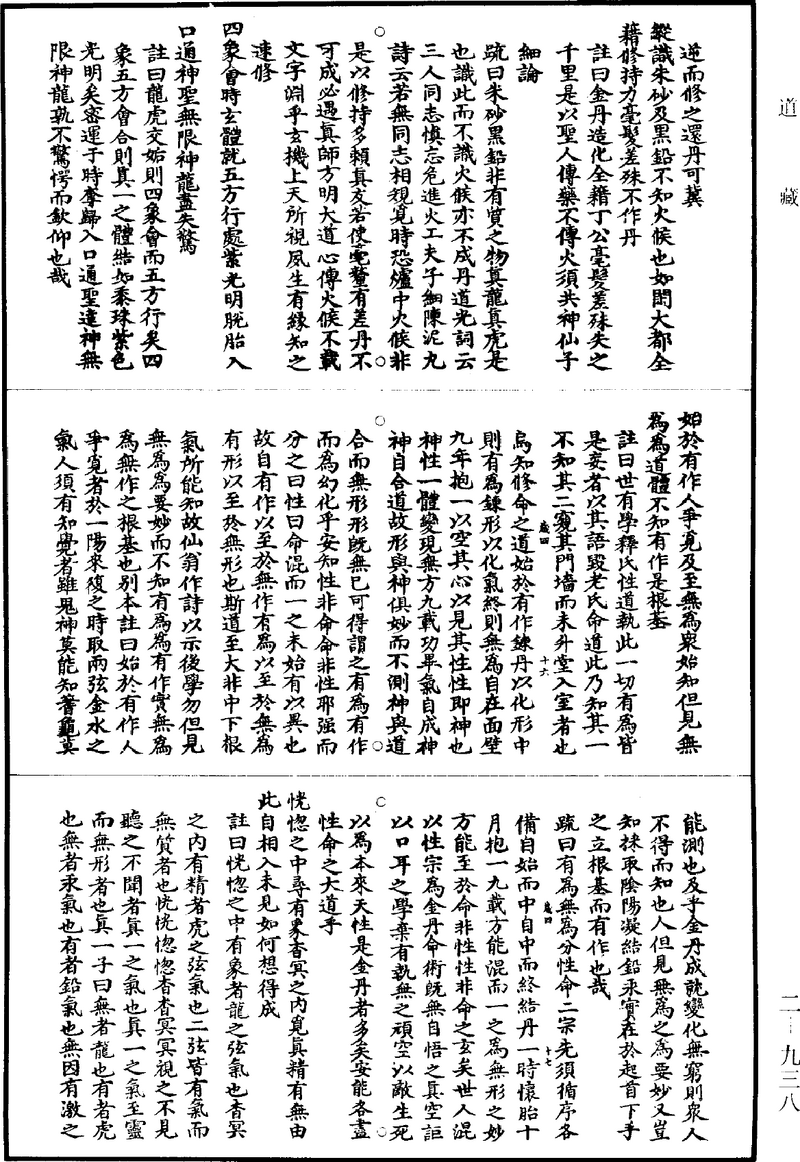 道藏
逆而修之還丹可冀
縱識朱砂及黑鉛不知火候也如閑大都全
藉修持力毫髮差殊不作丹
註曰金丹造化全藉丁公毫髮差殊失之
千里是以聖人傳藥不傳火須共神仙子
細論
疏曰朱砂黑鉛非有質之物真龍真虎是
也識此而不識火候亦不成丹道光詞云
三人同志慎忘危進火工夫子細陳泥丸
詩云若無同志相規覓時恐爐中火候非
是以修持多賴真友若使毫釐有差丹不
可成必遇真師方明大道心傳火候不載
文字淵乎玄機上天所視夙生有緣知之
速修
四象會時玄體就五方行處紫光明脫胎入
口通神聖無限神龍盡失驚
註曰龍虎交姤則四象會而五方行矣四
象五方會合則真一之體結如黍珠紫色
光明矣密運子時奪歸入口通聖達神無
限神龍孰不驚愕而欽仰也哉
始於有作人爭覓及至無為衆始知但見無
為為道體不知有作是根基
註曰世有學釋氏性道執此一切有為皆
是妄者以其語毀老氏命道此乃知其一
不知其二窺其門墻而未升堂入室者也
歲四
十六
烏知修命之道始於有作鍊丹以化形中
則有為鍊形以化氣終則無為自在面壁
九年抱一以空其心以見其性性即神也
神性一體變現無方九載功畢氣自成神
神自合道故形與神俱妙而不測神與道
合而無形形既無已可得謂之有為有作
而為幻化乎安知性非命命非性耶强而
分之曰性曰命混而一之未始有以異也
故自有作以至於無作有為以至於無為
有形以至於無形也斯道至大非中下根
氣所能知故仙翁作詩以示後學勿但見
無為為要妙而不知有為為有作實無為
為無作之根基也别本註曰始於有作人
爭覓者於一陽來復之時取兩弦金水之
氣人須有知覺者雖鬼神莫能知蓍龜莫
能測也及乎金丹成就變化無窮則衆人
不得而知也人但見無為之為要妙又豈
知採取陰陽凝結鉛汞實在於起首下手
之立根基而有作也哉
疏曰有為無為分性命二宗先須循序各
歲四
十七
備自始而中自中而終結丹一時懷胎十
月抱一九載方能混而一之為無形之妙
方能至於命非性性非命之玄矣世人混
以性宗為金丹命術既無自悟之真空詎
以口耳之學棄有執無之頑空以敵生死
以為本來天性是金丹者多矣安能各盡
性命之大道乎
恍惚之中尋有象杳冥之内覓真精有無由
此自相入未見如何想得成
註曰恍惚之中有象者龍之弦氣也杳冥
之内有精者虎之弦氣也二弦皆有氣而
無質者也恍恍惚惚杳杳冥冥視之不見
聽之不聞者真一之氣也真一之氣至靈
而無形者也真一子曰無者龍也有者虎
也無者汞氣也有者鉛氣也無因有激之
二-九三八